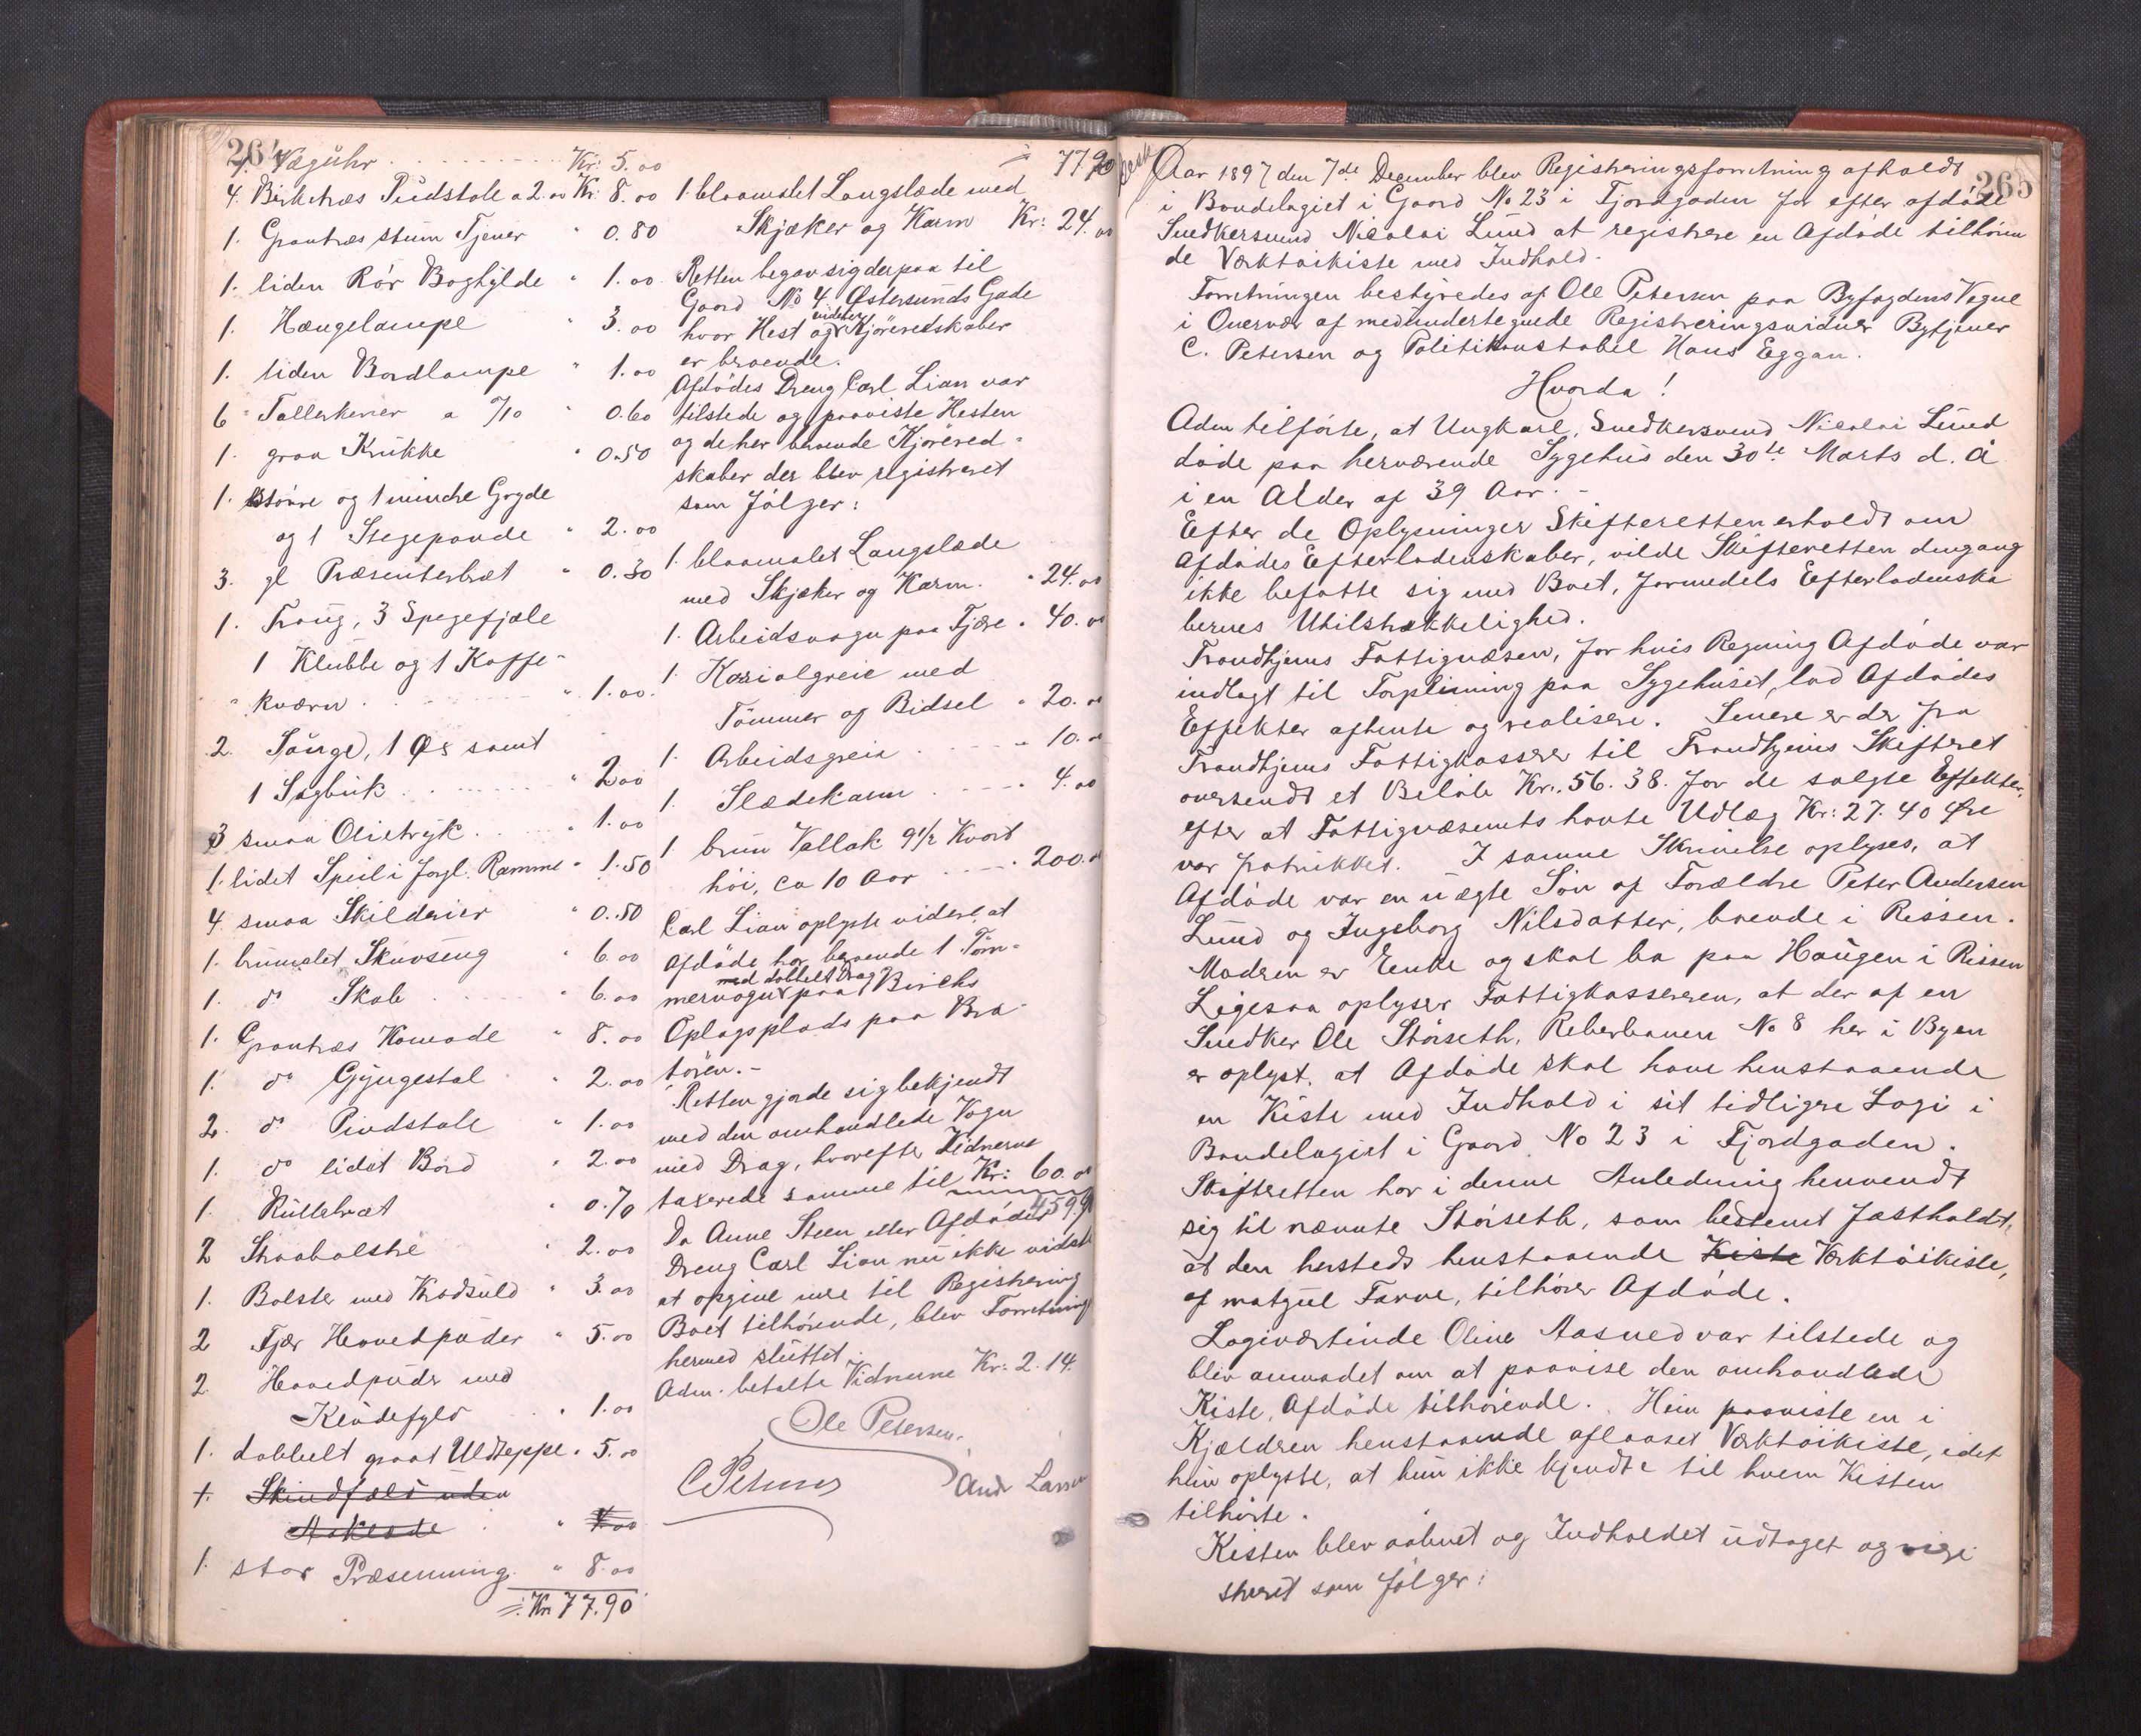 264
1. Væguhr . . . . . Kr: 5.00
4. Birketræs Pindstole a 2.00 Kr. 8.00
1. Grantræs stum Tjener " 0.80
1. liden Rör Boghylde " 1.00
1. Hængelampe " 3.00
1. liden Bordlampe " 1.00
6 Tallerkener a 0/10 " 0.60
1. graa Krukke " 0.50
1. större og 1 mindre Gryde
og 1 Stegepande " 2.00
3. gl Præsenterbræt " 0.30
1. Traug, 3 Spegefjæle
1 Klubbe og 1 Kaffe-
kværn . . . " 1.00
2. Sauge, 1 Öx samt
1 Sagbuk . . . " 2.00
3 smaa Olietryk . . . " 1.00
1. lidet Speil i forgl. Ramme " 1.50
4 smaa Skilderier " 0.80
1. brunmalet Skuvseng " 6.00
1. do Skab . . . " 6.00
1. Grantræs Komode " 8.00
1. do Gyngestol " 2.00
2. do Pindstole " 1.00
1. do lidet Bord " 2.00
1. Rullebræt " 0.70
2 Straabolstre " 2.00
1. Bolster med Kradsuld " 3.00
2 Fjær Hovedpuder " 5.00
2. Hovedpuder med
Kludefyld " 1.00
1. dobbelt graat Uldteppe " 5.00
1. Skindfæld uden
Aaklæde . " 4.00
1. stor Præsenning " 8.00
= Kr 77.90
= 77 90
1. blaamalet Langslæde med
Skjæker og Karm Kr: 24.00
Retten begav sig derpaa til
Gaard No 4. Østersunds Gade
hvor Hest og videre Kjöreredskaber
er beroende.
Afdödes Dreng Carl Lian var
tilstede og paaviste Hesten
og de her beroende Kjörered-
skaber der blev registreret
som fölger:
1. blaamalet Langslæde
med Skjæker og Karm. " 24.00
1. Arbeidsvogn paa Fjære " 40.00
1. Karjolgreie med
Tömmer og Bidsel " 20.00
1. Arbeidsgreie . . . " 10.00
1. Slædekarm . . . 4.00
1. brun Vallak 9 1/2 Kvart
höi, ca 10 Aar . . . 200.00
Carl Lian oplyste videre, at
Afdöde har beroende 1 Töm-
mervogn med dobbelt Drag paa Birchs
Oplagsplads paa Bra-
tören.-
Retten gjorde sig bekjendt
med den omhandlede Vogn
med Drag, hvorefter Vidnerne
taxerede samme til Kr: 60.00
459.90
Da Anne Steen eller Afdödes
Dreng Carl Lian nu ikke vidste
at opgive mere til Registrering
Boet tilhörende, blev Forretning
hermed sluttet.
Adm. betalte Vidnerne Kr: 2.14.
Ole Petersen.
C Petersen
Andr Larsen
265
Aar 1897 den 7de December blev Registreringsforretning afholdt
i Bondelogiet i Gaard No 23 i Fjordgaden for efter afdöde
Snedkersvend Nicolai Lund at registrere en Afdöde tilhören
de Værktöikiste med Indhold.
Forretningen bestyredes af Ole Petersen paa Byfogdens Vegne
i Overvær af medundertegnede Registreringsvidner Bytjener
C. Petersen og Politikonstabel Hans Eggan.
Hvorda!
Adm tilförte, at Ungkarl, Snedkersvend Nicolai Lund
döde paa herværende Sygehus den 30te Marts d. Å
i en Alder af 39 Aar. -
Efter de Oplysninger Skifteretten erholdt om
Afdödes Efterladenskaber, vilde Skifteretten dengang
ikke befatte sig med Boet, formedels Efterladenska
bernes Utilstrækkelighed.
Trondhjems Fattigvæsen, for hvis Regning Afdöde var
indlagt til Forpleining paa Sygehuset, lod Afdödes
Effekter afhente og realisere. Senere er der fra
Trondhjems Fattigkasserer til Trondhjems Skifteret
oversendt et Belöb Kr. 56.38. for de solgte Effekter,
efter at Fattigvæsenets havte Udlæg Kr: 27.40 Øre
var fratrukket. I samme Skrivelse oplyses, at
Afdöde var en uægte Sön af Forældre Peter Andersen
Lund og Ingeborg Nilsdatter, boende i Rissen.
Modren er Enke og skal bo paa Haugen i Rissen
Ligesaa oplyser Fattigkassereren, at der af en
Snedker Ole Störseth, Reberbanen No 8 her i Byen
er oplyst, at Afdöde skal have henstaaende
en Kiste med Indhold i sit tidligere Logi i
Bondelogiet i Gaard No 23 i Fjordgaden.
Skifteretten har i denne Anledning henvendt
sig til nævnte Störseth, som bestemt fastholdt,
at den hersteds henstaaende Kiste Værktöikiste,
af matgul Farve, tilhörer Afdöde.
Logiværtinde Oline Aasned var tilstede og
blev anmodet om at paavise den omhandlede
Kiste, Afdöde tilhörende. Hun paaviste en i
Kjælderen henstaaende aflaaset Værktöikiste, idet
hun oplyste, at hun ikke kjendte til hvem Kisten
tilhörte.
Kisten blev aabnet og Indholdet udtaget og regi
streret som fölger: